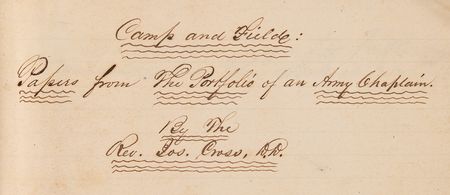 Camp and Field:
Papers from The Portfolio of an Army Chaplain.
By The
Rev. Jos. Cross, D.D.